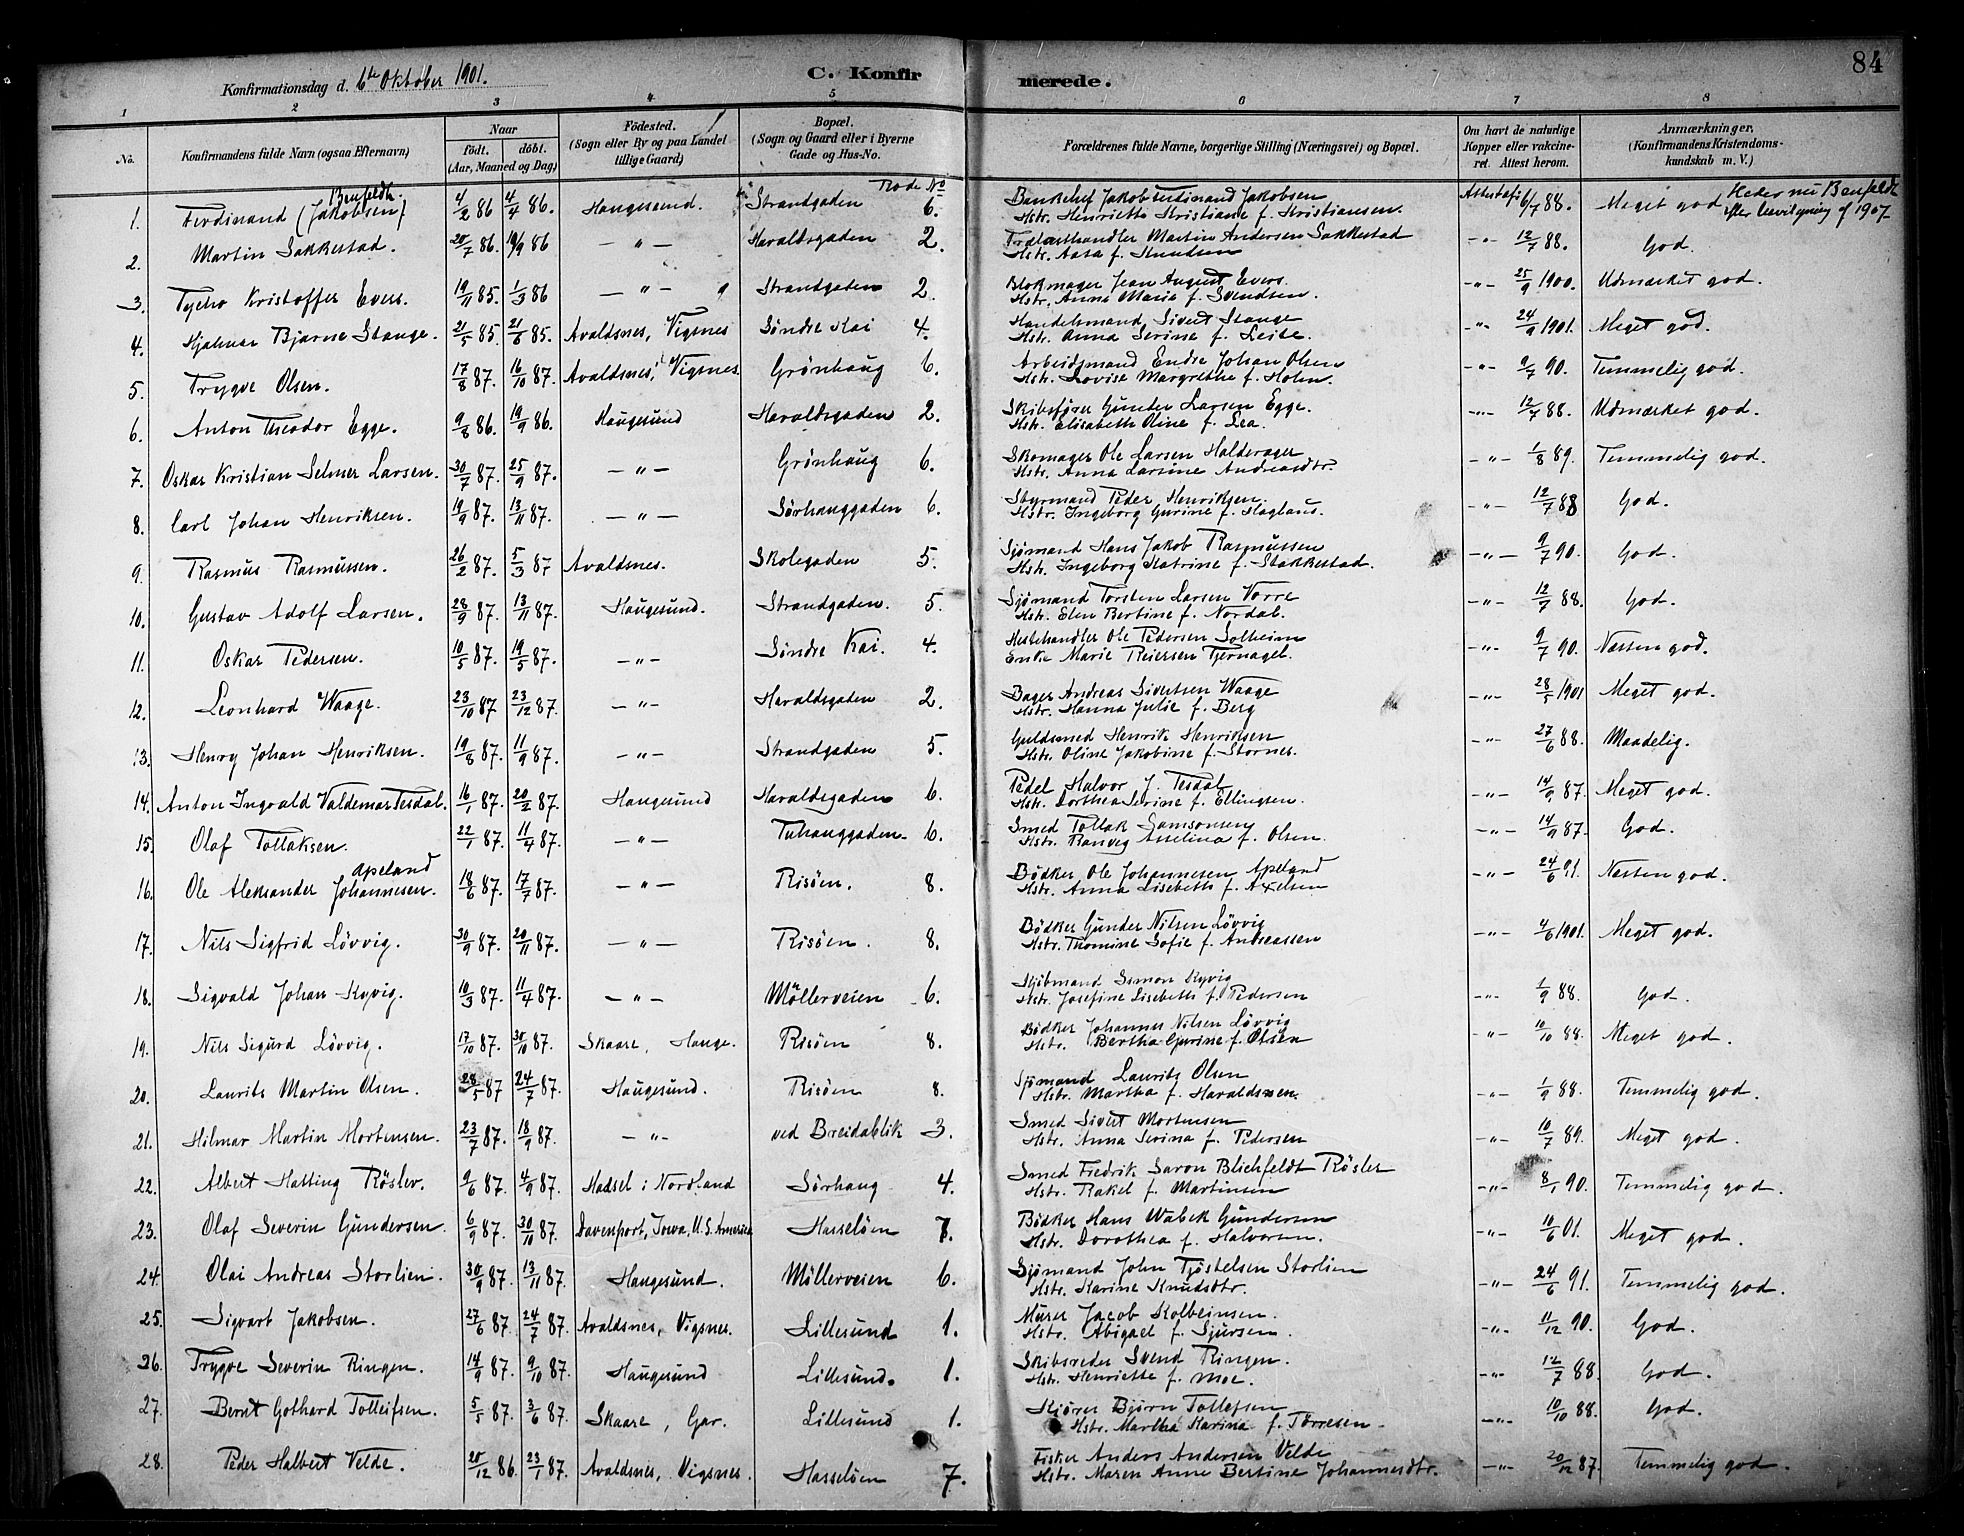 84
Konfirmationsdag d. 6te Oktober 1901.
C. Konfirmerede.
1 2 3 4 5 6 7 8
No. Konfirmandens fulde Navn (ogsaa Efternavn) Naar födt. döbt. (Aar, Maaned og Dag) Födested. (Sogn eller By og paa Landet tillige Gaard) Bopæl. (Sogn og Gaard eller i Byerne Gade og Hus-No. Forældrenes fulde Navne, borgerlige Stilling (Næringsvei) og Bopæl. Om havt de naturlige Kopper eller vaccineret. Attest herom. Anmærkninger. (Konfirmandens Kristendomskundskab m. V.)
Rode No
Benfeldt.
1. Ferdinand (Jakobsen) 4/2 86 4/4 86. Haugesund. Strandgaden 6. Bankchef Jakob Ferdinand Jakobsen Hstr. Henriette Kristiane f. Kristiansen. Attest af 6/7 88. Meget god Heder nu Benfeldt efter bevilgning af 1907
2. Martin Sakkestad. 20/7 86. 19/9 86 — " — Haraldsgaden 2. Trælasthandler Martin Andersen Sakkestad Hstr. Aasa f. Knudsen -"- 12/7 88. God.
3. Tycho Kristoffer Evers. 19/11 85. 1/3 86 — " — Strandgaden 2. Blokmager Jean August Evers. Hstr. Anna Maria f. Svendsen. -"- 25/9 1900. Udmærket god.
4. Hjalmar Bjarne Stange. 21/5 85. 21/6 85. Avaldsnes, Vigsnes Söndre Kai 4. Handelsmand Sivert Stange Hstr. Anna Serine f. Leite. -"- 24/9 1901. Meget god.
5. Trygve Olsen. 17/8 87. 16/10 87. Avaldsnes, Vigsnes. Grönhaug 6. Arbeidsmand Endre Johan Olsen Hstr. Lovise Margrethe f. Holm. -"- 9/7 90. Temmelig god.
6. Anton Theodor Egge. 9/8 86. 19/9 86. Haugesund Haraldsgaden 2. Skibsfører Gunder Larsen Egge. Hstr. Elisabeth Oline f. Lea. -"- 12/7 88. Udmærket god.
7. Oskar Kristian Selmer Larsen. 30/7 87. 25/9 87. — " — Grönhaug 6. Skomager Ole Larsen Halderager Hstr. Anna Larsine Andreasdtr. -"- 1/8 89. Temmelig god.
8. Carl Johan Henriksen. 19/9 87. 13/11 87. — " — Sörhauggaden 6. Styrmand Peder Henriksen. Hstr. Ingeborg Gurine f. Hagland. -"- 12/7 88 God.
9. Rasmus Rasmussen. 26/2 87. 5/3 87 Avaldsnes. Skolegaden 5. Sjömand Hans Jakob Rasmussen Hstr. Ingeborg Katrine f. Stakkestad. -"- 9/7 90. God.
10. Gustav Adolf Larsen. 28/9 87. 13/11 87. Haugesund. Strandgaden. 5. Sjömand Torsten Larsen Vorre Hstr. Elen Bertine f. Nordal. -"- 12/7 88. God.
11. Oskar Pedersen. 10/5 87. 19/5 87. — " — Söndre Kai. 4. Hestehandler Ole Pedersen Solheim Enke Marie Reiersen Tjernagel. -"- 9/7 90. Næsten god.
12. Leonhard Waage. 23/10 87 23/12 87. — " — Haraldsgaden 2. Bager Andreas Sivertsen Waage Hstr. Hanna Julie f. Berg -"- 28/5 1901 Meget god.
13. Henry Johan Henriksen. 19/8 87. 11/9 87. — " — Strandgaden 5. Guldsmed Henrik Henriksen Hstr. Oline Jakobine f. Stornes. -"- 27/6 88. Maadelig.
14. Anton Ingvald Valdemar Tesdal. 16/1 87. 20/2 87. Haugesund Haraldsgaden 6. Pedel Halvor J. Tesdal Hstr. Dorthea Serine f. Ellingsen. -"- 14/9 87. Meget god.
15. Olaf Tollaksen. 22/1 87. 11/4 87. — " — Tuhauggaden. 6. Smed Tollak Samsonsen Hstr. Ranveg Anselina f. Olsen. -"- 14/9 87. God.
Apeland
16. Ole Aleksander Johannesen. 18/6 87. 17/7 87. — " — Risöen. 8. Bödker Ole Johannesen Apeland Hstr. Anna Lisebeth f. Axelsen -"- 24/6 91. Næsten god.
17. Nils Sigfrid Lövvig. 30/9 87. 20/11 87. — " — Risöen. 8. Bödker Gunder Nilsen Lövvig Hstr. Thomine Sofie f. Andreassen -"- 4/6 1901. Meget god.
18. Sigvald Johan Kyvig. 10/3 87. 11/4 87. — " — Möllerveien 6. Sjömand Simon Kyvig Hstr. Josefine Lisebeth f. Pedersen -"- 1/9 88. God.
19. Nils Sigurd Lövvig. 17/10 87. 30/10 87. Skaare, Hauge. Risöen 8. Bödker Johannes Nilsen Lövvig Hstr. Bertha Gurine f. Olsen -"- 10/10 88. Meget god.
20. Laurits Martin Olsen. 28/5 87 24/7 87. Haugesund. Risöen 8. Sjömand Laurits Olsen Hstr. Martha f. Haraldsen. -"- 1/9 88. Temmelig god.
21. Hilmar Martin Mortensen. 23/7 87. 18/9 87. — " — ved Breidablik 3. Smed Sivert Mortensen Hstr. Anna Serina f. Pedersen -"- 10/7 89. Meget god.
22. Albert Hatting Röslev. 9/6 87. 4/9 87. Hadsel i Nordland Sörhaug 4. Smed Fredrik Saron Blichfeldt Rösler Hstr. Rakel f. Martinsen -"- 8/1 90. Temmelig god.
23. Olaf Severin Gundersen. 6/9 87. 30/10 87. Davenport, Iowa, U.S. America Hasselöen 7. Bödker Hans Wabek Gundersen Hstr. Dorothea f. Halvorsen. -"- 10/6 01. Meget god.
24. Olai Andreas Storlien. 30/9 87. 13/11 87. Haugesund. Möllerveien 6. Sjömand John Tjöstelsen Storlien Hstr. Karine Knudsdtr. -"- 24/6 91. Temmelig god.
25. Sigvart Jakobsen. 27/6 87. 24/7 87. Avaldsnes, Vigsnes. Lillesund 1. Murer Jacob Kolbeinsen. Hstr. Abigael f. Sjursen. -"- 11/12 90. God.
26. Trygve Severin Ringen. 14/9 87. 9/10 87. Haugesund Lillesund. 1. Skibsreder Svend Ringen. Hstr. Henriette f. Moe. -"- 12/7 88. God.
27. Bernt Gothard Tolleifsen. 5/5 87. 3/6 87. Skaare, Gar. Lillesund 1. Kjörer Björn Tollefsen Hstr. Martha Karina f. Torresen. -"- 10/10 88. God.
28. Peder Halbert Velde. 20/12 86. 23/1 87. Avaldsnes, Vigsnes. Hasselöen 7. Fisker Anders Andersen Velde Hstr. Maren Anne Bertine Johannesdtr. -"- 20/12 87. Temmelig god.